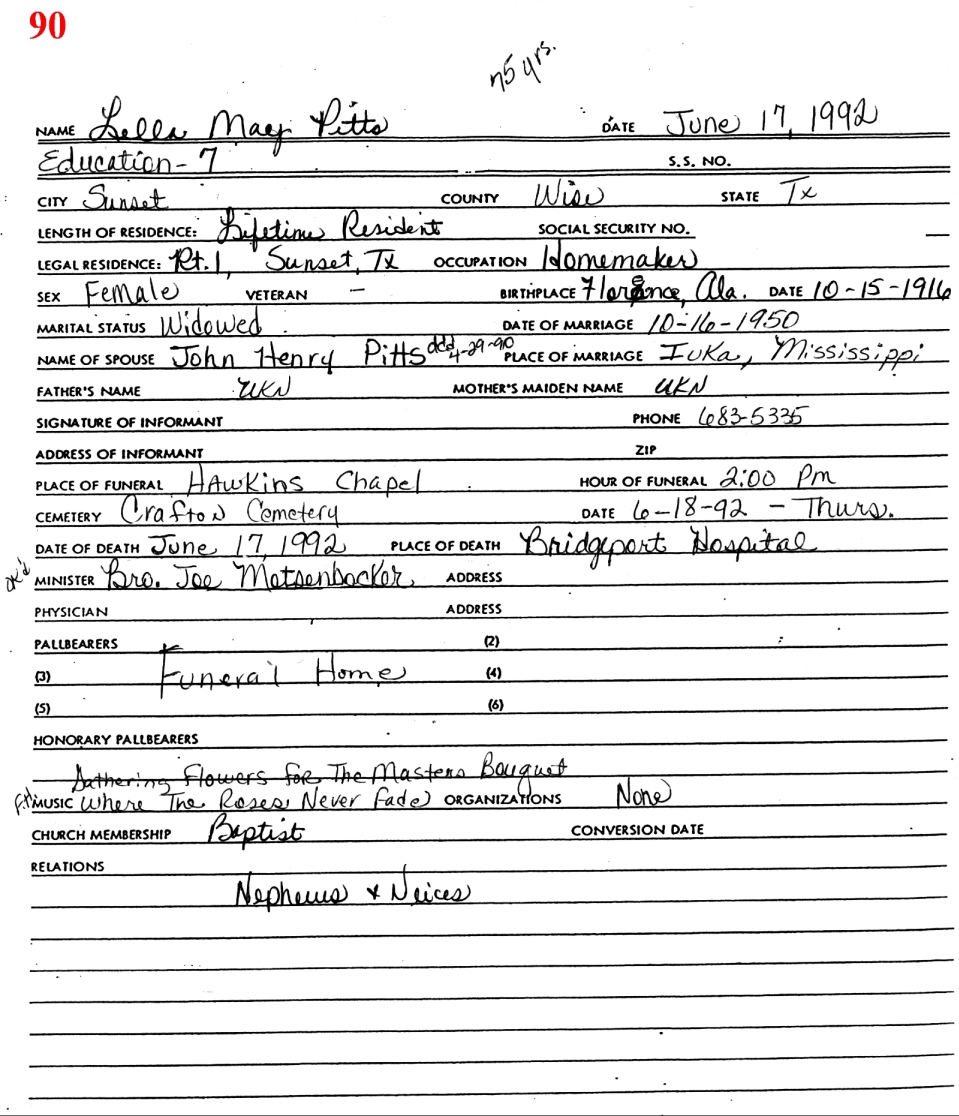 90
75 yrs.
NAME Lella Mae Pitts DATE June 17, 1992
Education - 7 S.S. NO.
CITY Sunset COUNTY Wise STATE Tx
LENGTH OF RESIDENCE: Lifetime Resident SOCIAL SECURITY NO.
LEGAL RESIDENCE: Rt. 1, Sunset, Tx OCCUPATION Homemaker
SEX Female VETERAN — BIRTHPLACE Florence, Ala. DATE 10-15-1916
MARITAL STATUS Widowed DATE OF MARRIAGE 10-16-1950
NAME OF SPOUSE John Henry Pitts dcd 4-29-90 PLACE OF MARRIAGE Iuka, Mississippi
FATHER'S NAME UKN MOTHER'S MAIDEN NAME UKN
SIGNATURE OF INFORMANT PHONE 683-5335
ADDRESS OF INFORMANT ZIP
PLACE OF FUNERAL HAwkins Chapel HOUR OF FUNERAL 2:00 Pm
CEMETERY Crafton Cemetery DATE 6-18-92 - Thurs.
DATE OF DEATH June 17, 1992 PLACE OF DEATH Bridgeport Hospital
ok'd MINISTER Bro. Joe Matsenbacker ADDRESS
PHYSICIAN ADDRESS
PALLBEARERS (2)
(3) Funeral Home (4)
(5) (6)
HONORARY PALLBEARERS
Gathering Flowers for The Masters Bouquet
MUSIC Where The Roses Never Fade ORGANIZATIONS None
CHURCH MEMBERSHIP Baptist CONVERSION DATE
RELATIONS
Nephews & Neices